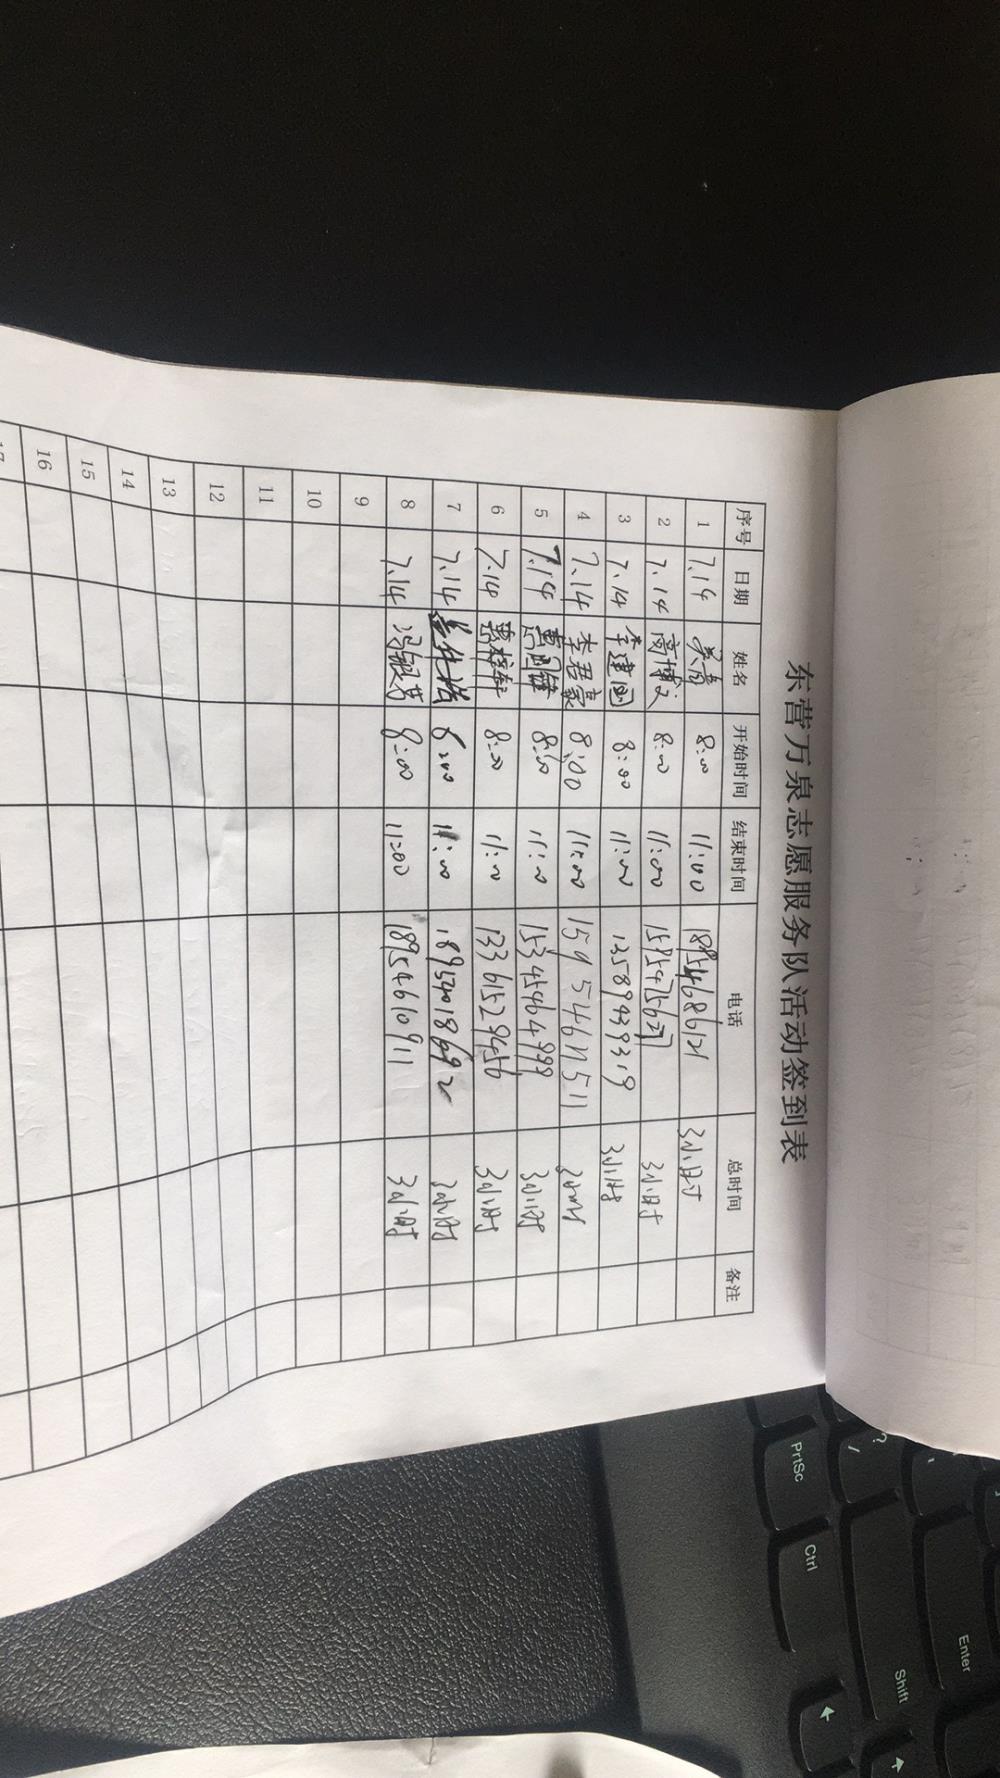 东营万泉志愿服务队活动签到表
序号 日期 姓名 开始时间 结束时间 电话 总时间 备注
1 7.14 8:00 11:00 18954686121 3小时
2 7.14 高博文 8:00 11:00 15954756271 3小时
3 7.14 李建国 8:00 11:00 13589939319 3小时
4 7.14 李君豪 8:00 11:00 3小时
5 7.14 8:00 11:00 15345464999 3小时
6 7.14 8:00 11:00 13361529456 3小时
7 7.14 8:00 11:00 18954018692 3小时
8 7.14 冯银芳 8:00 11:00 18954610911 3小时
9
10
11
12
13
14
15
16
17
PrtSc
Ctrl
?
/
Shift
Enter